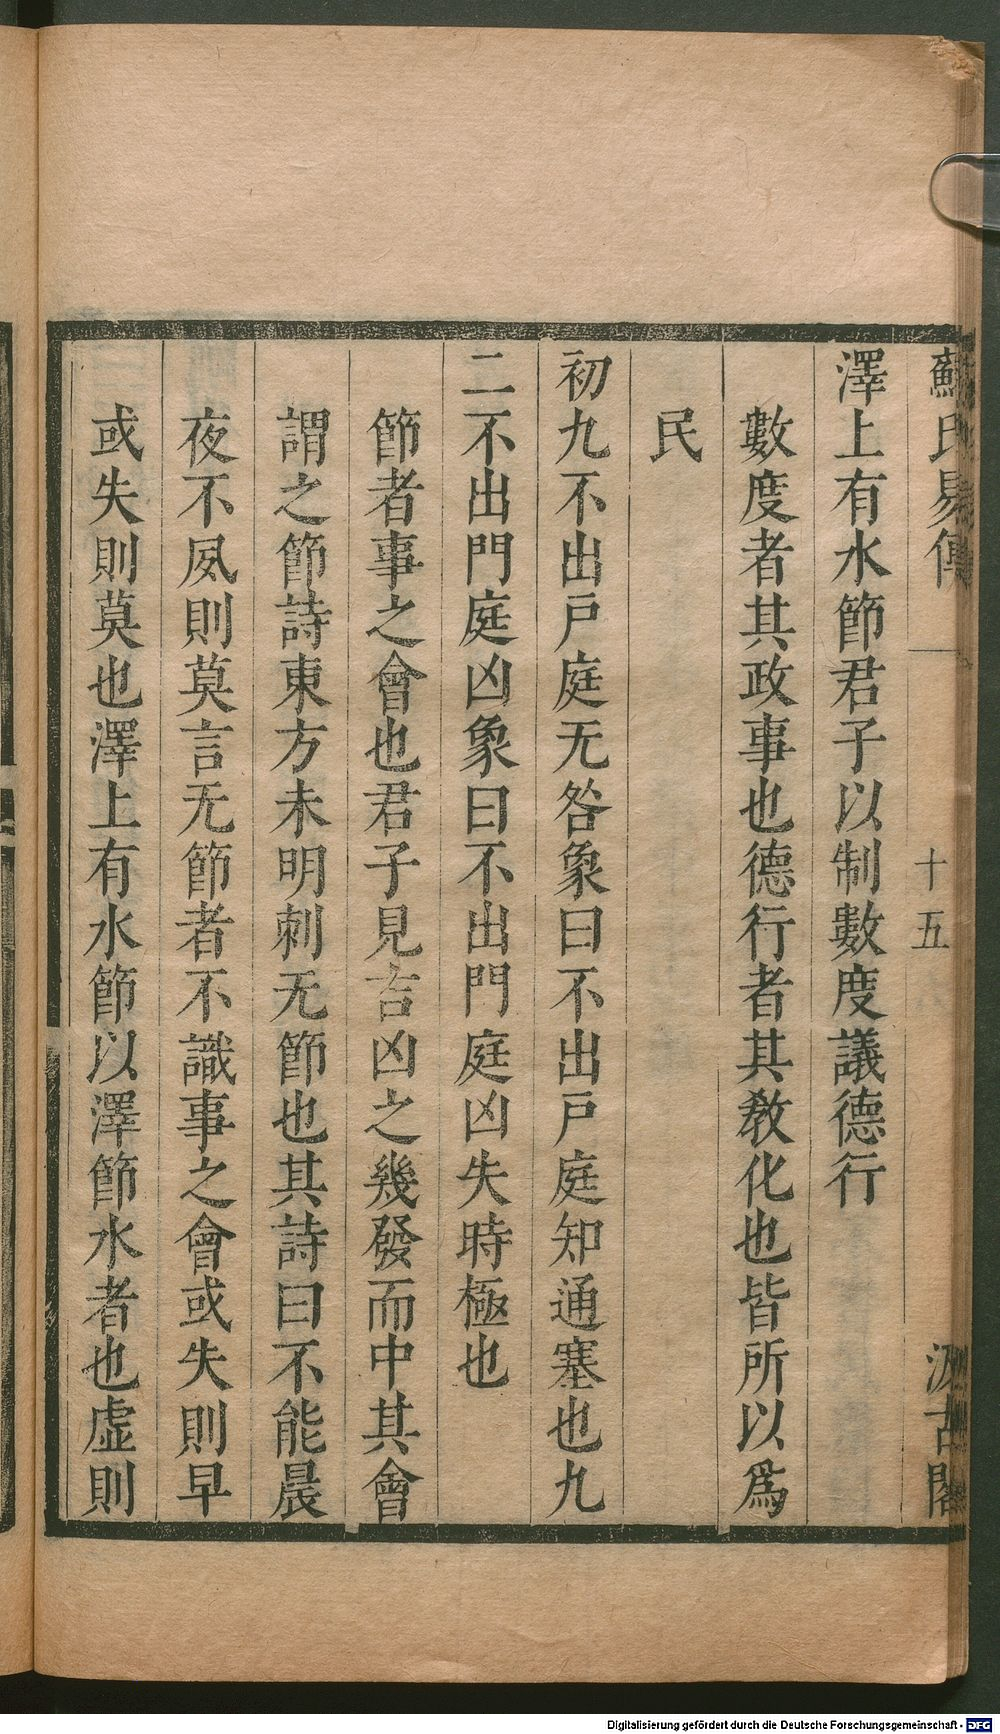 蘇氏易傳
十五
汲古閣
澤上有水節君子以制數度議德行
數度者其政事也德行者其教化也皆所以爲
民
初九不出戶庭无咎象曰不出戶庭知通塞也九
二不出門庭凶象曰不出門庭凶失時極也
節者事之會也君子見吉凶之幾發而中其會
謂之節詩東方未明刺无節也其詩曰不能晨
夜不夙則莫言无節者不識事之會或失則早
或失則莫也澤上有水節以澤節水者也虛則
Digitalisierung gefördert durch die Deutsche Forschungsgemeinschaft - DFG